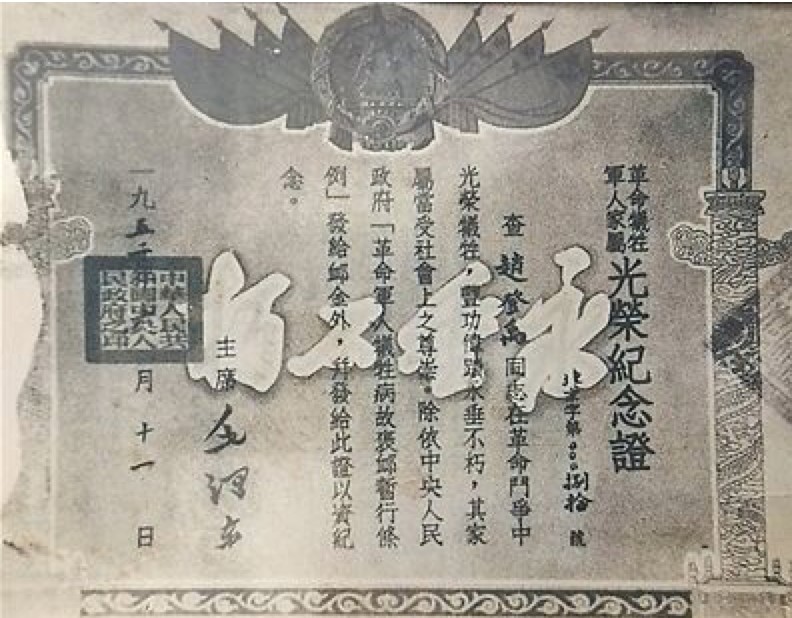 革命犧牲
軍人家屬
光榮紀念證
字第 捌拾 號
查 趙登禹 同志在革命鬥爭中
光榮犧牲，豐功偉蹟永垂不朽，其家
屬當受社會上之尊崇。除依中央人民
政府「革命軍人犧牲病故褒卹暫行條
例」發給卹金外，幷發給此證以資紀
念。
主席 毛澤東
一九五 月十一日
中華人民共
和國中央人
民政府之印
永垂不朽